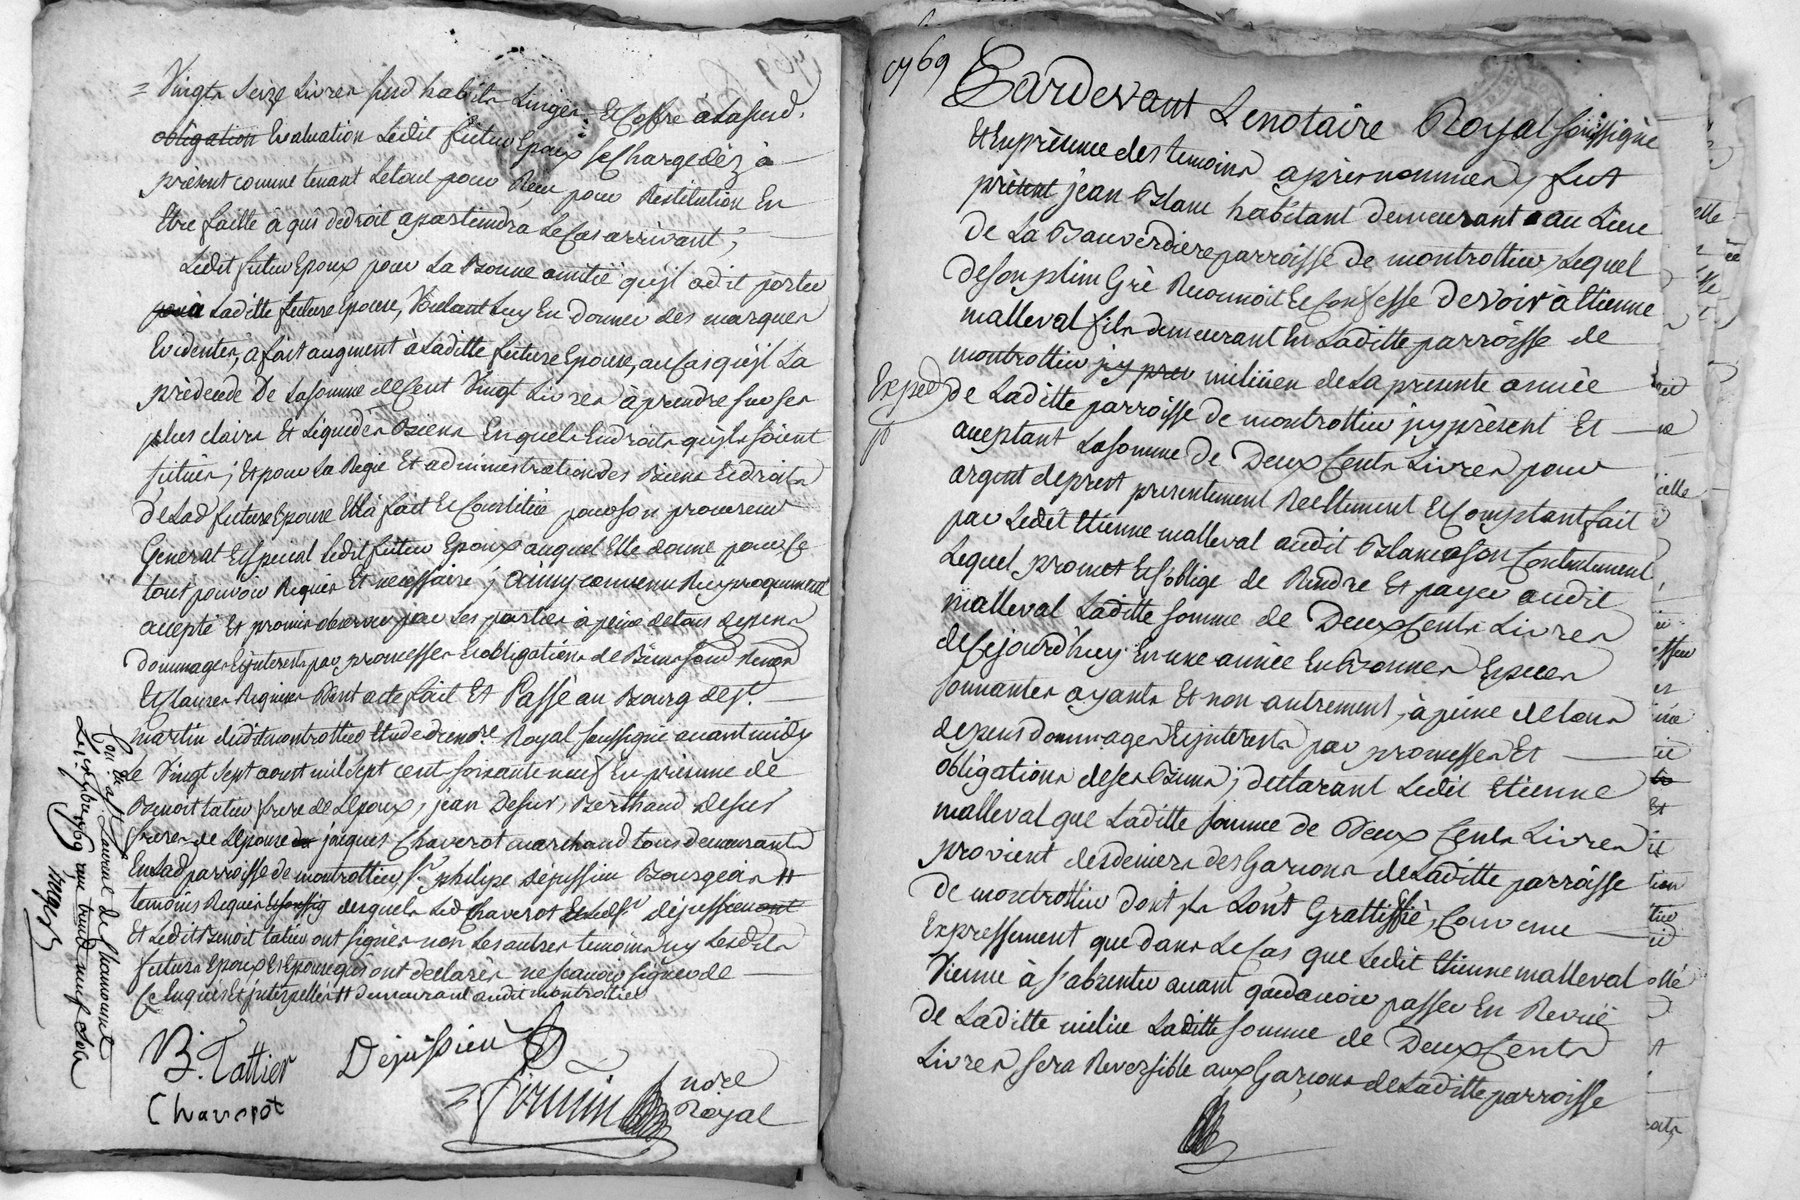 = Vingts Seize Livres susd habits Linges Et Coffre àlasusd.
obligation Evaluation Ledit futur Epoux se Charge dèz à
présent comme tenant Letout pour Reçu pour Restitution En
Etre faitte à qui dedroit apartiendra Le Cas arrivant;
Ledit futur Epoux pour La Bonne amitié qu'jl adit porter
pour à Laditte future Epouse, Voulant Luy En donner des marques
Evidentes, afait augment à Laditte future Epouse, au Cas qu'jl La
prédecede De Lasomme de Cent Vingt Livres à prendre sur ses
plus claires Et Liquides Biens En quels Endroits qu'jls soient
situés; Et pour La Regie Et administration des Biens Et droits
de Lad future Epouse Elle à fait Et Constitué pour son procureur
Général Et Spécial Ledit futur Epoux auquel Elle donne pour Ce
tout pouvoir Requis Et necessaire; Ainsy convenu Reciproquement
accepté Et promis observer par Les parties à peine de tous depens
dommages Et jnterests par promesses Et obligations de Biens soum Renon
Et Clauses Requises Dont acte fait Et Passé au Bourg de st.
martin dudit montrottier Etude dunore. Royal soussigné avant midy
Le Vingt sept aoust mil sept cent soixante neuf En présence de
Benoit tatier frere de Lépoux, jean Desur, Berthaud desur
freres de Lépouse jaques Chaverot marchand tous demeurants
En Lad parroisse de montrottier, sr. philipe dépussieu Bourgeois #
temoins Requis Et soussig desquels Led Chaverot Et Led Sr dépussieu ont
Et Ledit Benoit tatier ont signés non Les autres temoins ny Lesdits
futurs Epoux Et Epouse qui ont declarés ne scavoir signer de
Ce Enquis Et jnterpellés # demeurant audit montrottier
B. Tattier
Dépussieu
Chaverot
nore
Royal
Con. à St Laurent de Chamousset
Le 7bre 1769 reçu trente neuf sols
1769
Pardevant Lenotaire Royal soussigné
Et En présence des temoins après nommés, fut
présent jean Blanc habitant demeurant au Lieu
de La Bauverdiere parroisse de montrottier, Lequel
de son plein Gré Reconnoit Et Confesse devoir à Etienne
malleval fils demeurant En Laditte parroisse de
montrottier jcy pres milicien de La presente année
Exped
de Laditte parroisse de montrottier jcy présent Et
aceptant Lasomme de Deux Cents Livres pour
argent de prest presentement Reellement Et Comptant fait
par Ledit Etienne malleval audit Blanc à son Contentement
Lequel promet Et s'oblige de Rendre Et payer audit
malleval Laditte somme de Deux Cents Livres
de Cejourd'huy En une année En Bonnes Especes
sonnantes ayants Et non autrement, à peine de tous
depens dommages Et jnterests par promesses Et
obligations de ses Biens; declarant Ledit Etienne
malleval que Laditte somme de Deux Cents Livres
provient des deniers des Garçons de Laditte parroisse
de montrottier dont jls L'ont Grattiffié, Convenu
Expressement que dans Le Cas que Ledit Etienne malleval
Vienne à s'absenter avant quedavoir passer En Revuë
de Laditte milice Laditte somme de Deux Cents
Livres sera Reversible aux Garçons de Laditte parroisse